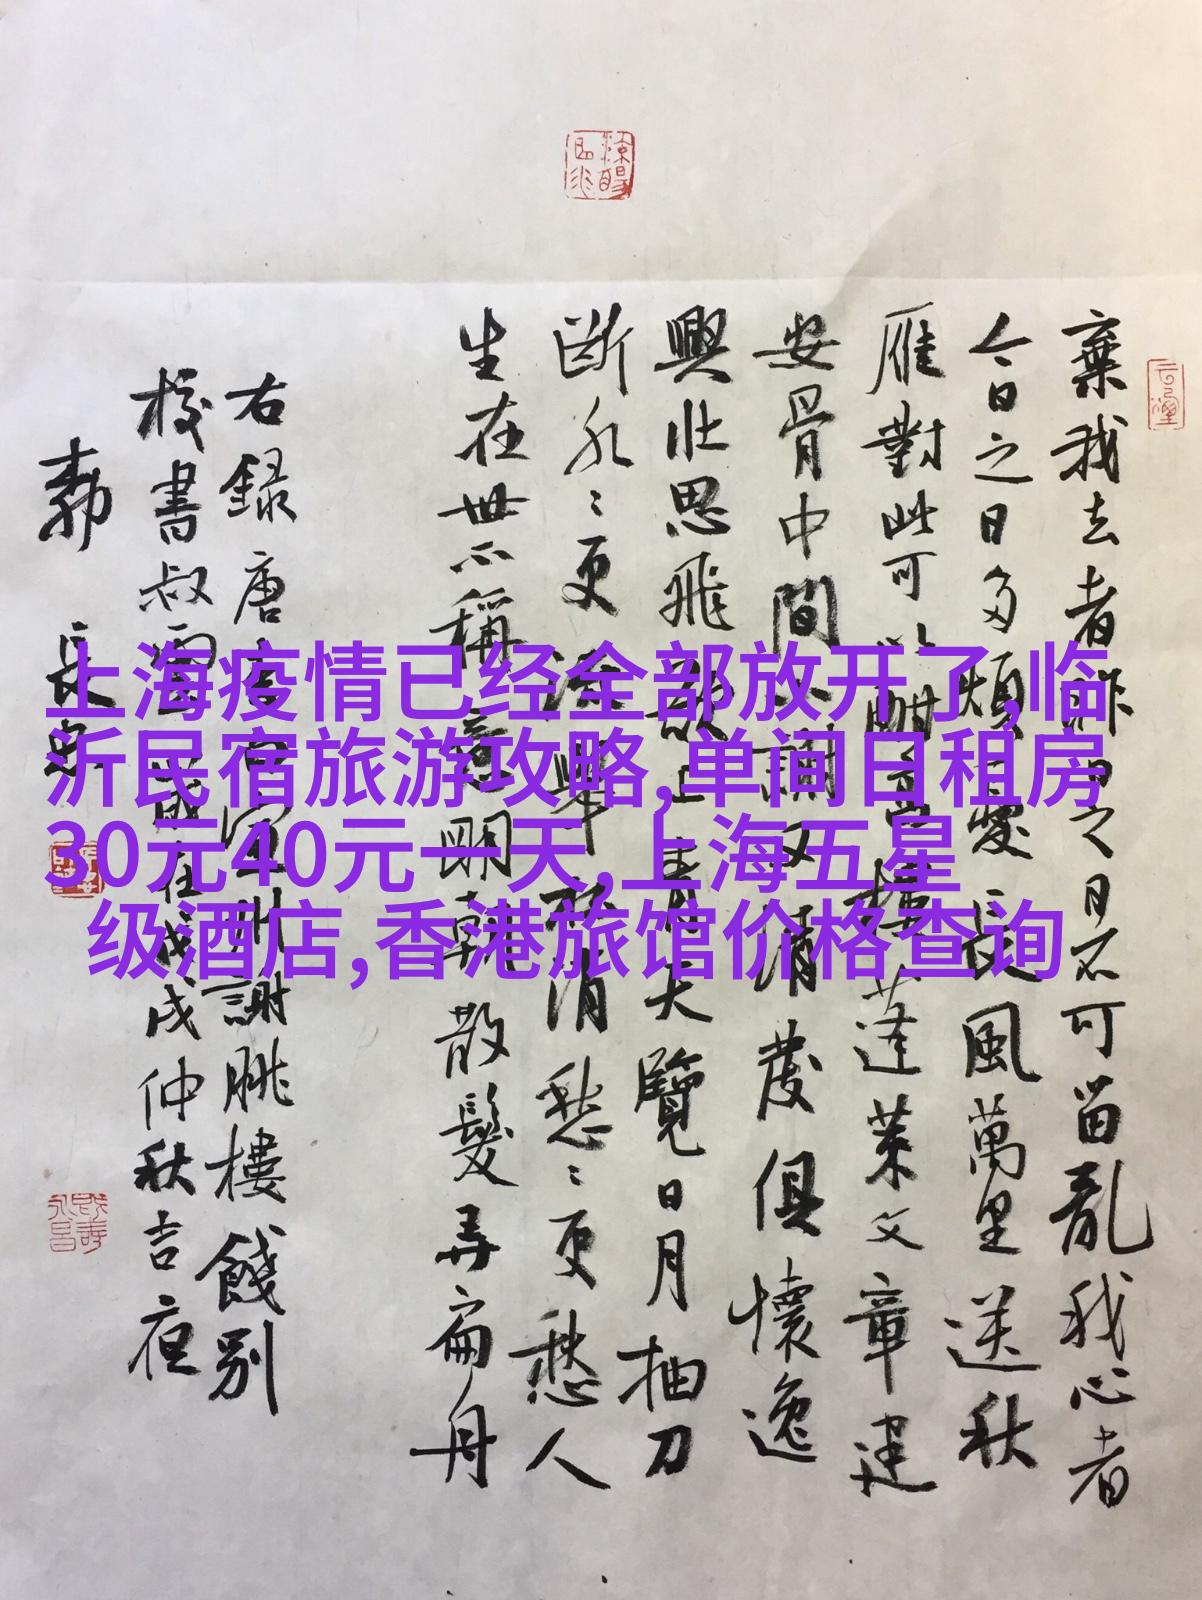 上海疫情已经全部放开了,临
沂民宿旅游攻略,单间日租房
30元40元一天,上海五星
级酒店,香港旅馆价格查询
棄我去者昨日之日不可留亂我心者
今日之日多煩憂長風萬里送秋
雁對此可以酣高樓蓬萊文章建
安骨中間小謝又清發俱懷逸
興壯思飛欲上青天覽日月抽刀
斷水〻更流舉杯消愁〻更愁人
生在世不稱意明朝散髮弄扁舟
右錄唐李白宣州謝朓樓餞別
校書叔雲歲在戊戌仲秋吉夜